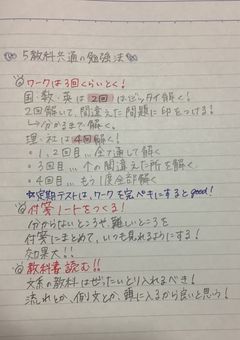 5教科共通の勉強法
ワークは3回くらいとく!
国・数・英は2回はゼッタイ解く!
2回解いて、間違えた問題に印をつける!
↳分かるまで解く。
理・社は4回解く!
・1、2回目…全て通して解く
・3回目…その間違えた所を解く
・4回目…もう1度全部解く
☆定期テストは、ワークを完ペキにするとgood!
付箋ノートをつくる!
分からないところや、難しいところを
付箋にまとめて、いつも見れるようにする!
効果大!!
教科書読む!!
文系の教科はぜったいとり入れるべき!
流れとか、例文とか、頭に入るから良いと思う!